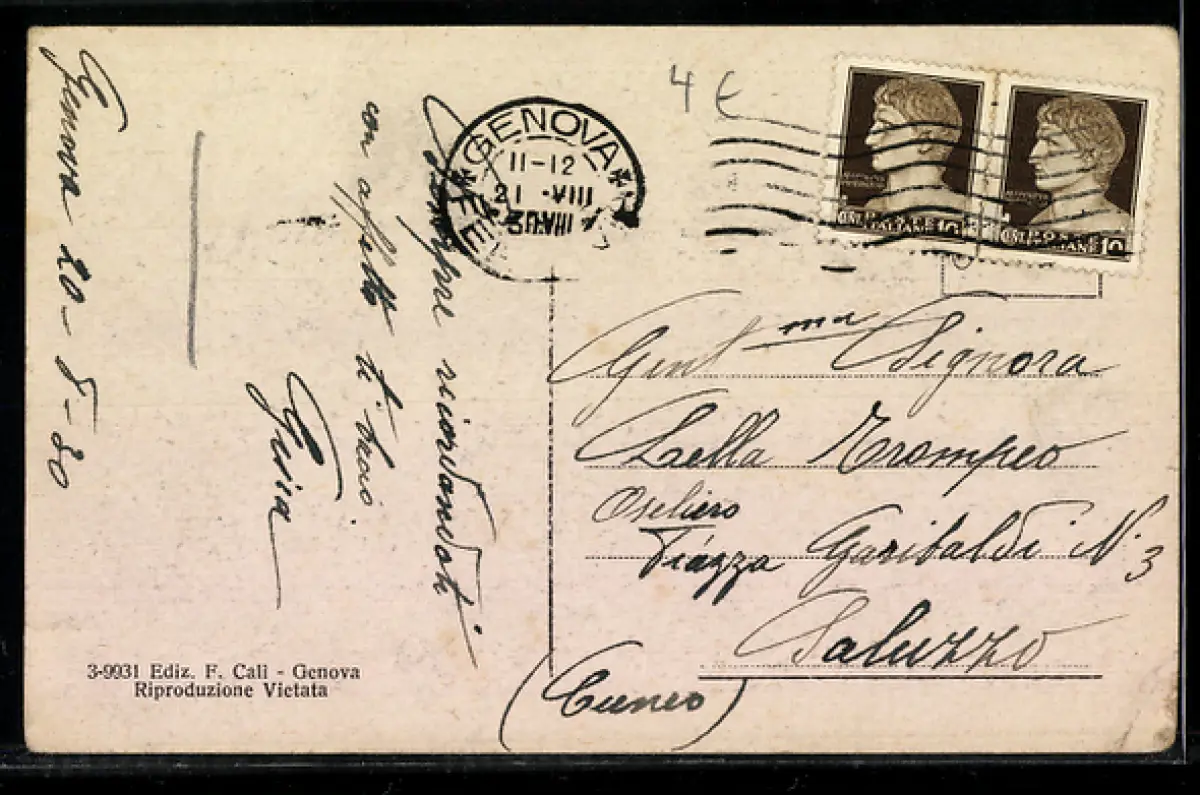 Genova 20-8-30
Sempre ricordandoti
con affetto ti bacio
Gina
4 €
GENOVA
11-12
21 VIII
FER
POSTE ITALIANE 10
POSTE ITALIANE 10
Gent ma Signora
Lella Trompeo
Oseliero
Piazza Garibaldi N. 3
Saluzzo
(Cuneo)
3-9931 Ediz. F. Cali - Genova
Riproduzione Vietata